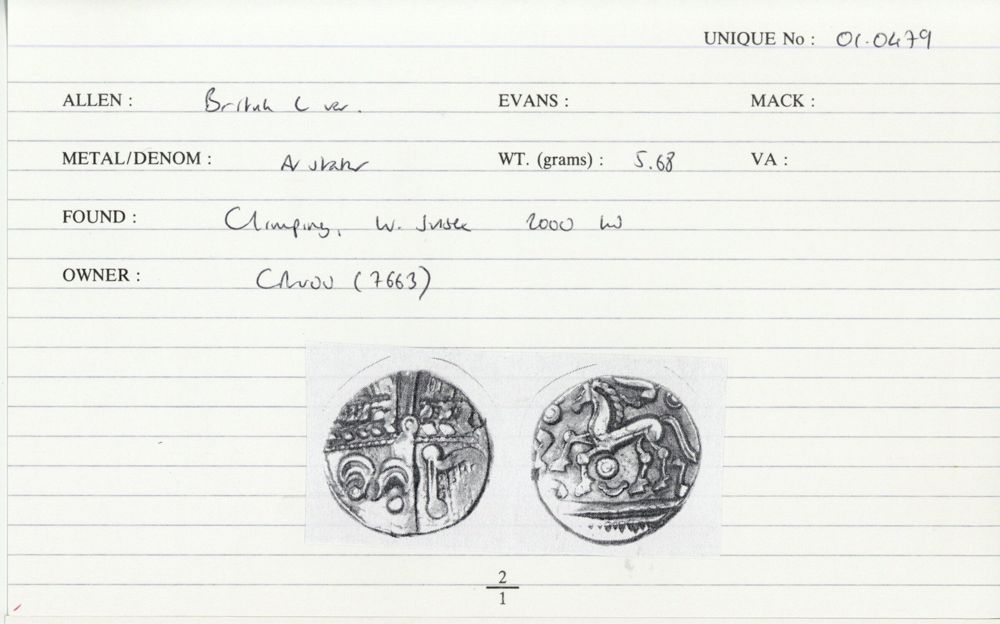 UNIQUE No : 01.0479
ALLEN : British L var. EVANS : MACK :
METAL/DENOM : AV stater WT. (grams) : 5.68 VA :
FOUND : Climping, W. Sussex 2000
OWNER : (7663)
2
1